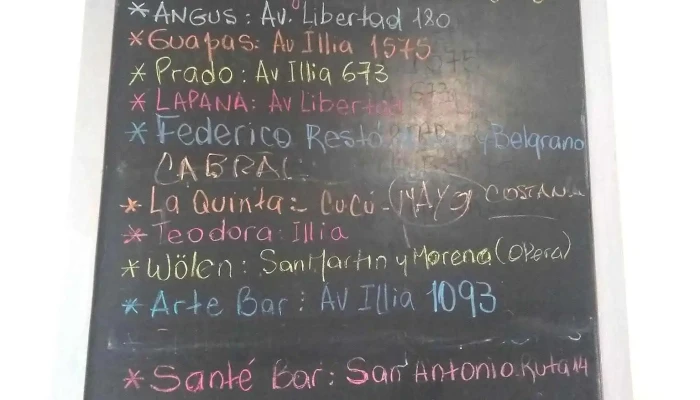 * ANGUS: Av. Libertad 180
* Guapas: Av Illia 1575
* Prado: Av Illia 673
* LAPANA: Av Libertad
* Federico Resto y Belgrano
CABRAL
* La Quinta: CUCÚ - COSTAN
* Teodora: Illia
* Wölen: San Martin y Morena (Opera)
* Arte Bar: AV Illia 1093
* Santé Bar: San Antonio. Ruta 14